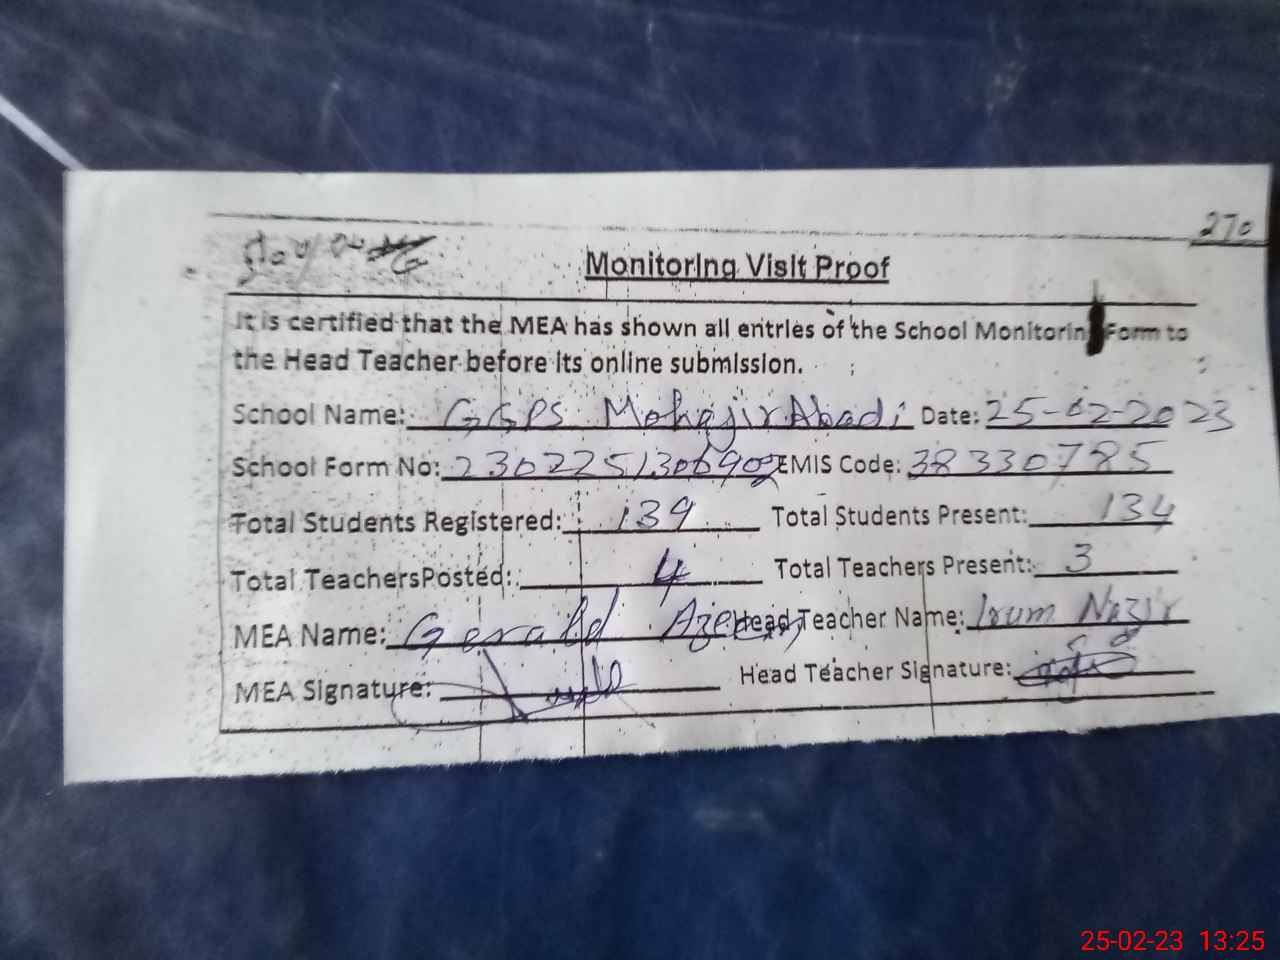 270
Monitoring Visit Proof
It is certified that the MEA has shown all entries of the School Monitoring Form to
the Head Teacher before its online submission.
School Name: GGPS Mohajir Abadi Date: 25-02-2023
School Form No: EMIS Code: 38330785
Total Students Registered: 139 Total Students Present: 134
Total TeachersPosted: 4 Total Teachers Present: 3
MEA Name: Gerald Head Teacher Name: Irum Nazir
MEA Signature: Head Teacher Signature:
25-02-23 13:25